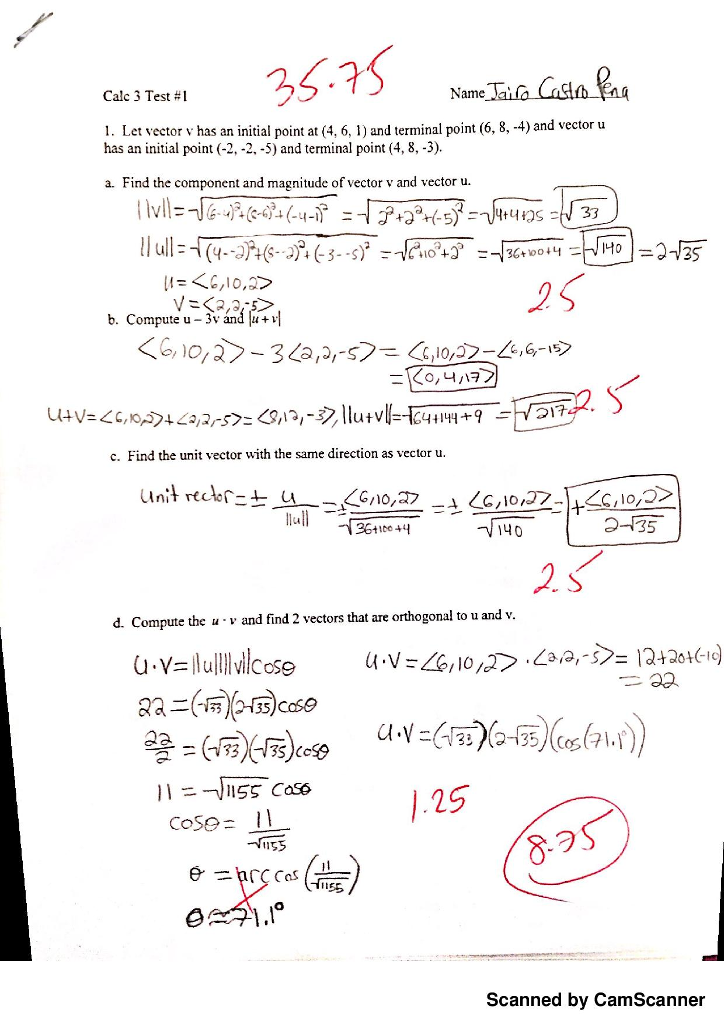 35.75
Calc 3 Test #1
Name Jairo Castro Pena
1. Let vector v has an initial point at (4, 6, 1) and terminal point (6, 8, -4) and vector u
has an initial point (-2, -2, -5) and terminal point (4, 8, -3).
a. Find the component and magnitude of vector v and vector u.
||v||=√(6-4)²+(8-6)²+(-4-1)² = √2²+2²+(-5)² = √4+4+25 = √33
||u||=√(4--2)²+(8--2)²+(-3--5)² = √6²+10²+2² = √36+100+4 = √140 = 2√35
u=<6,10,2>
v=<2,2,-5>
2.5
b. Compute u – 3v and |u + v|
<6,10,2> - 3<2,2,-5> = <6,10,2> - <6,6,-15>
= <0,4,17>
u+v=<6,10,2>+<2,2,-5>=<8,12,-3>, ||u+v||=√64+144+9 = √217
2.5
c. Find the unit vector with the same direction as vector u.
Unit vector = ± u/||u|| = ± <6,10,2>/√36+100+4 = ± <6,10,2>/√140 = + <6,10,2>/2√35
2.5
d. Compute the u · v and find 2 vectors that are orthogonal to u and v.
u·v=||u||||v||cosθ
u·v=<6,10,2>·<2,2,-5>=12+20+(-10)
= 22
22=(√33)(2√35)cosθ
22/2 = (√33)(√35)cosθ
u·v=(√33)(2√35)(cos(71.1°))
11 = √1155 cosθ
cosθ = 11/√1155
1.25
8.75
θ = arccos(11/√1155)
θ≈71.1°
Scanned by CamScanner